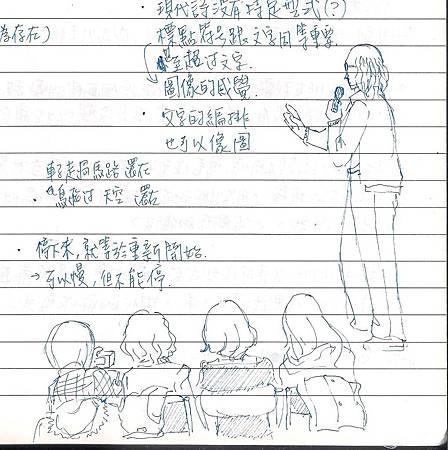 ・現代詩沒有特定型式(?)
為存在)
標點符号跟文字同等重要
至超过文字.
圖像的感覺.
・文字的編排
也可以像圖
走過馬路 還在
・鳥飛过 天空 還在
・停下來,就等於重新開始.
→可以慢,但不能停.